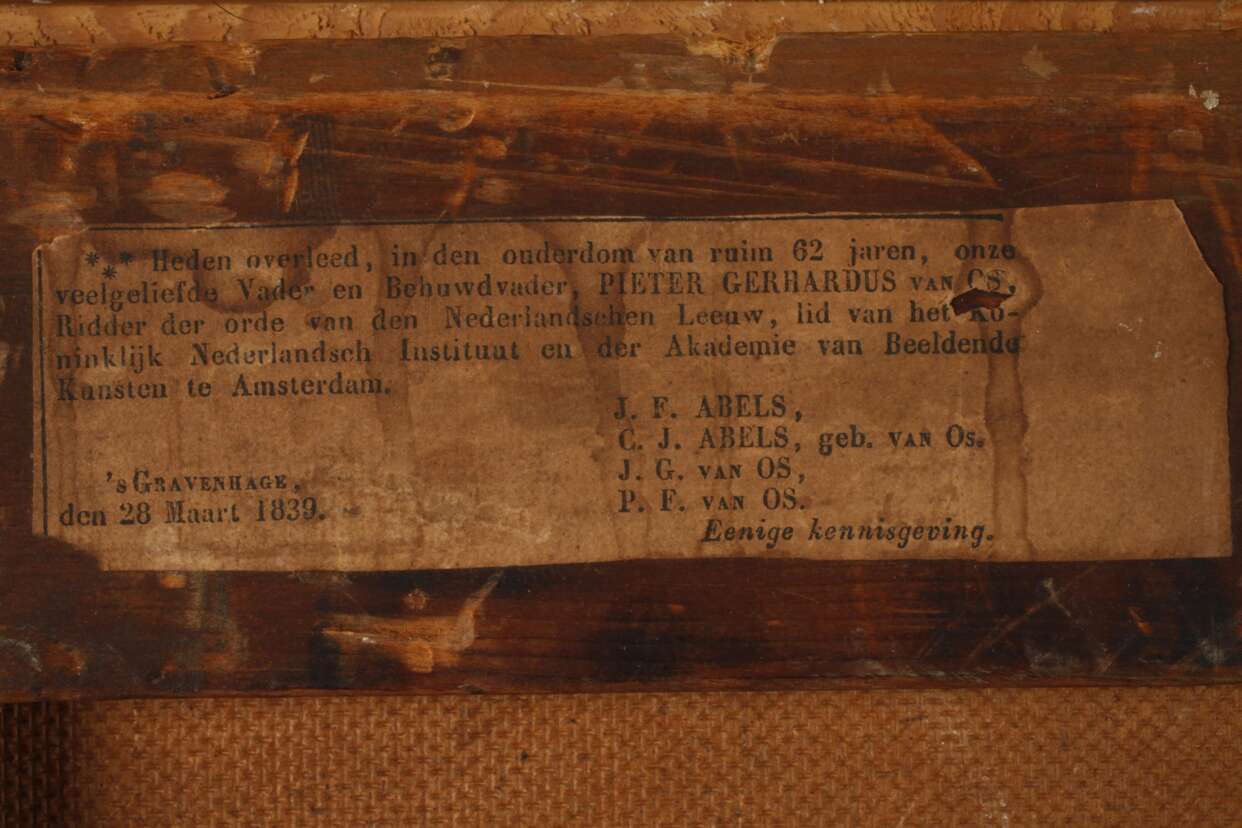 *** Heden overleed, in den ouderdom van ruim 62 jaren, onze
veelgeliefde Vader en Behuwdvader, PIETER GERHARDUS VAN OS,
Ridder der orde van den Nederlandschen Leeuw, lid van het Ko-
ninklijk Nederlandsch Instituut en der Akademie van Beeldende
Kunsten te Amsterdam.
J. F. ABELS,
C. J. ABELS, geb. VAN Os.
'sGRAVENHAGE,
J. G. VAN OS,
den 28 Maart 1839.
P. F. VAN OS.
Eenige kennisgeving.